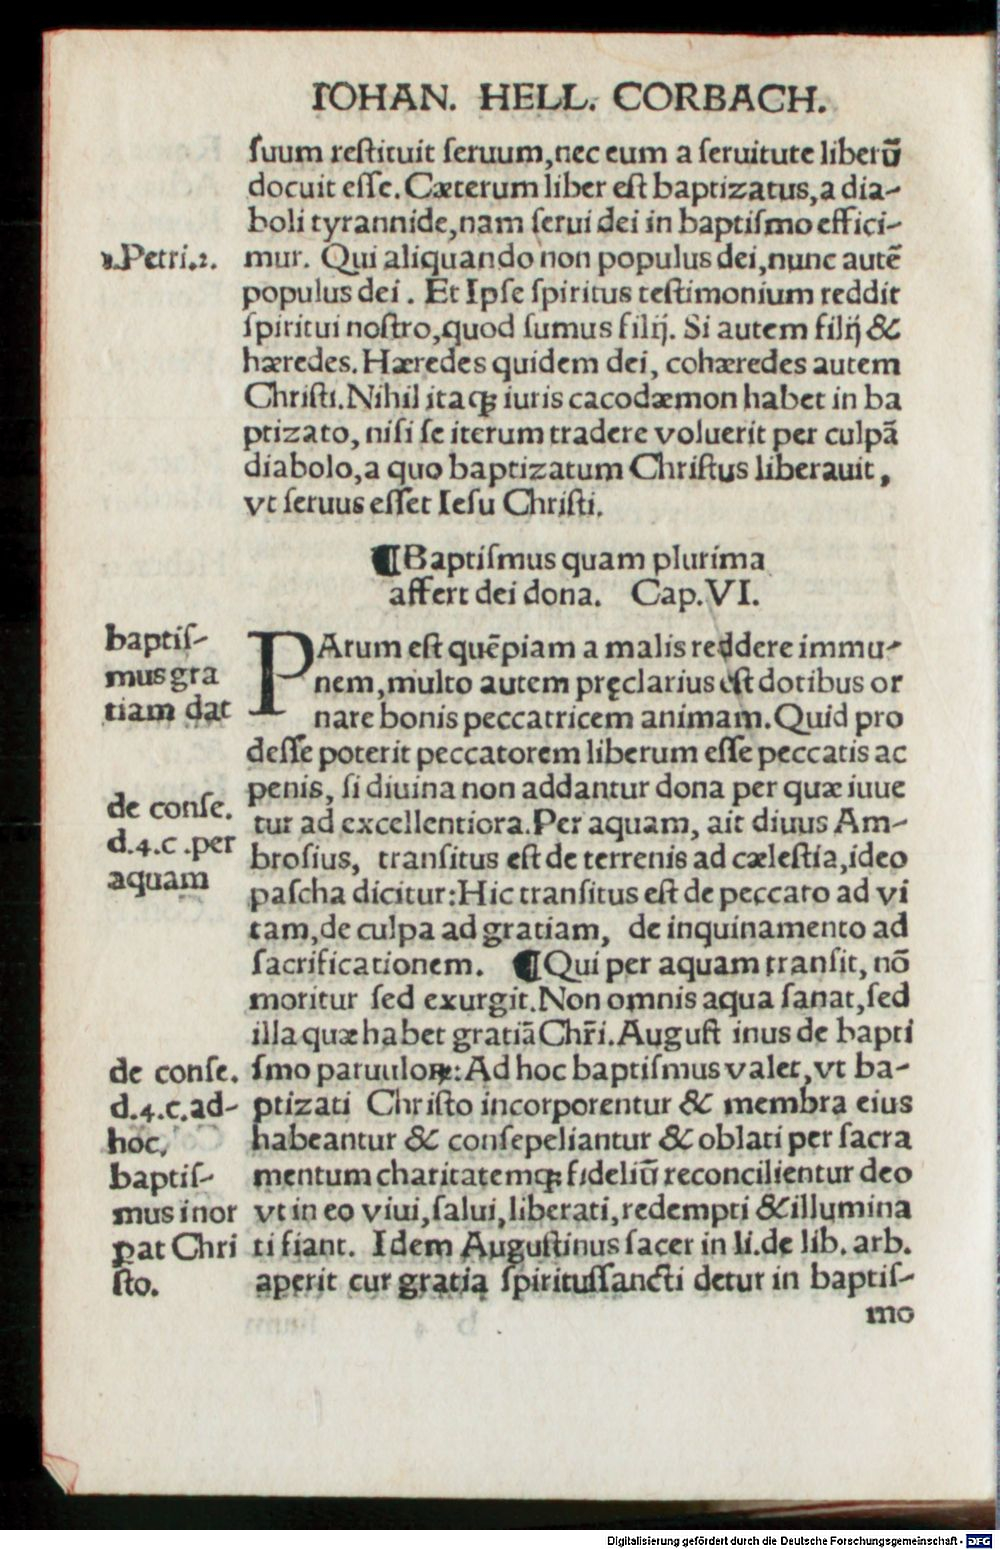 IOHAN. HELL. CORBACH.
ſuum reſtituit ſeruum,nec eum a ſeruitute liberū
docuit eſſe. Cæterum liber eſt baptizatus, a dia-
boli tyrannide, nam ſerui dei in baptiſmo effici-
1.Petri.2.
mur. Qui aliquando non populus dei, nunc autē
populus dei. Et Ipſe ſpiritus teſtimonium reddit
ſpiritui noſtro,quod ſumus filij. Si autem filij &
hæredes. Hæredes quidem dei, cohæredes autem
Chriſti. Nihil itaqꝫ iuris cacodæmon habet in ba
ptizato, niſi ſe iterum tradere voluerit per culpā
diabolo, a quo baptizatum Chriſtus liberauit,
vt ſeruus eſſet Ieſu Chriſti.
¶Baptiſmus quam plurima
affert dei dona. Cap.VI.
baptiſ-
mus gra
tiam dat
PArum eſt quēpiam a malis reddere immu-
nem, multo autem pręclarius eſt dotibus or
nare bonis peccatricem animam. Quid pro
deſſe poterit peccatorem liberum eſſe peccatis ac
penis, ſi diuina non addantur dona per quæ iuue
de conſe.
d.4.c.per
aquam
tur ad excellentiora. Per aquam, ait diuus Am-
broſius, tranſitus eſt de terrenis ad cæleſtia, ideo
paſcha dicitur: Hic tranſitus eſt de peccato ad vi
tam, de culpa ad gratiam, de inquinamento ad
ſacrificationem. ¶Qui per aquam tranſit, nō
moritur ſed exurgit. Non omnis aqua ſanat, ſed
illa quæ habet gratiā Chr̄i. Auguſt inus de bapti
de conſe.
d.4.c.ad-
hoc,
ſmo paruuloꝝ: Ad hoc baptiſmus valet, vt ba-
ptizati Chriſto incorporentur & membra eius
habeantur & conſepeliantur & oblati per ſacra
baptiſ-
mus inor
pat Chri
ſto.
mentum charitatemqꝫ fideliū reconcilientur deo
vt in eo viui, ſalui, liberati, redempti & illumina
ti fiant. Idem Auguſtinus ſacer in li. de lib. arb.
aperit cur gratia ſpirituſſancti detur in baptiſ-
mo
Digitalisierung gefördert durch die Deutsche Forschungsgemeinschaft - DFG